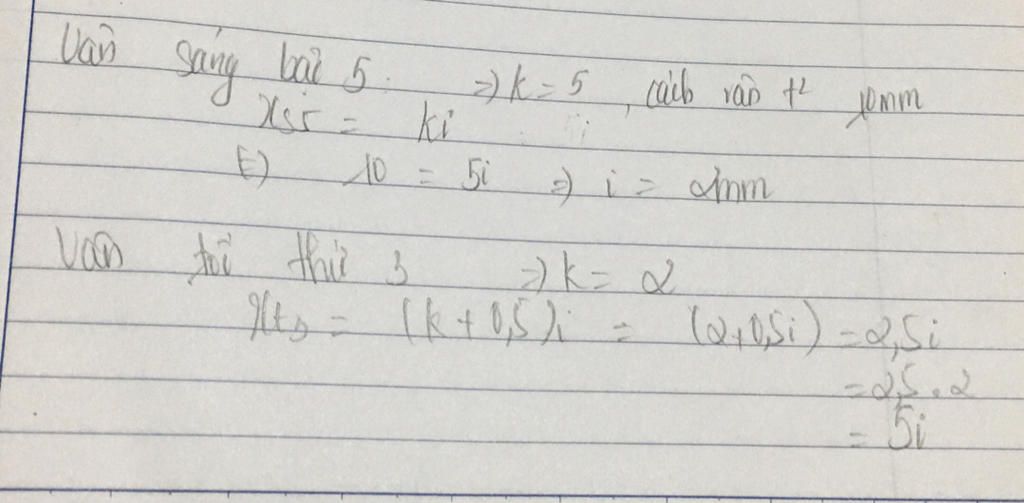 Vân sáng bậc 5. => k = 5, cách vân t² 10mm
xs5 = ki
(=) 10 = 5i => i = 2mm
Vân tối thứ 3 => k = 2
xt3 = (k + 0,5)i = (2+0,5i) = 2,5i
= 2,5.2
= 5i